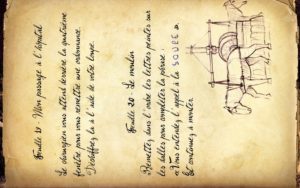 Feuille 19 Mon passage à l'hôpital
Le chirurgien vous attend derrière la quatrième
fenêtre pour vous remettre une ordonnance.
Déchiffrez la à l'aide de votre loupe.
Feuille 20 Le moulin
Remettez dans l'ordre les lettres peintes sur
les dalles pour compléter la phrase :
« Vous entendez l'appel à la SOUPE ».
Et continuez à monter.